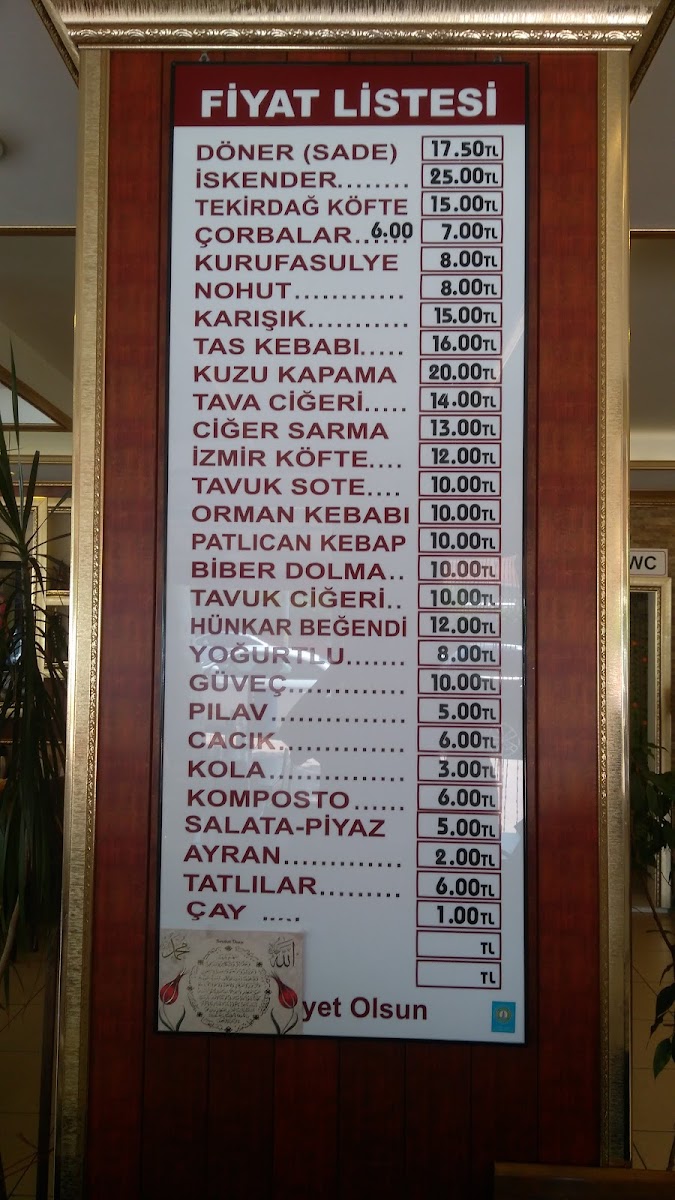 FİYAT LİSTESİ
DÖNER (SADE) 17.50TL
İSKENDER........ 25.00TL
TEKİRDAĞ KÖFTE 15.00TL
ÇORBALAR...... 6.00 7.00TL
KURUFASULYE 8.00TL
NOHUT............ 8.00TL
KARIŞIK........... 15.00TL
TAS KEBABI..... 16.00TL
KUZU KAPAMA 20.00TL
TAVA CİĞERİ..... 14.00TL
CİĞER SARMA 13.00TL
İZMİR KÖFTE.... 12.00TL
TAVUK SOTE.... 10.00TL
ORMAN KEBABI 10.00TL
PATLICAN KEBAP 10.00TL
BİBER DOLMA.. 10.00TL
TAVUK CİĞERİ.. 10.00TL
HÜNKAR BEĞENDİ 12.00TL
YOĞURTLU....... 8.00TL
GÜVEÇ............. 10.00TL
PILAV............... 5.00TL
CACIK.............. 6.00TL
KOLA............... 3.00TL
KOMPOSTO...... 6.00TL
SALATA-PİYAZ 5.00TL
AYRAN............. 2.00TL
TATLILAR......... 6.00TL
ÇAY .... 1.00TL
TL
TL
yet Olsun
WC
الله
محمد